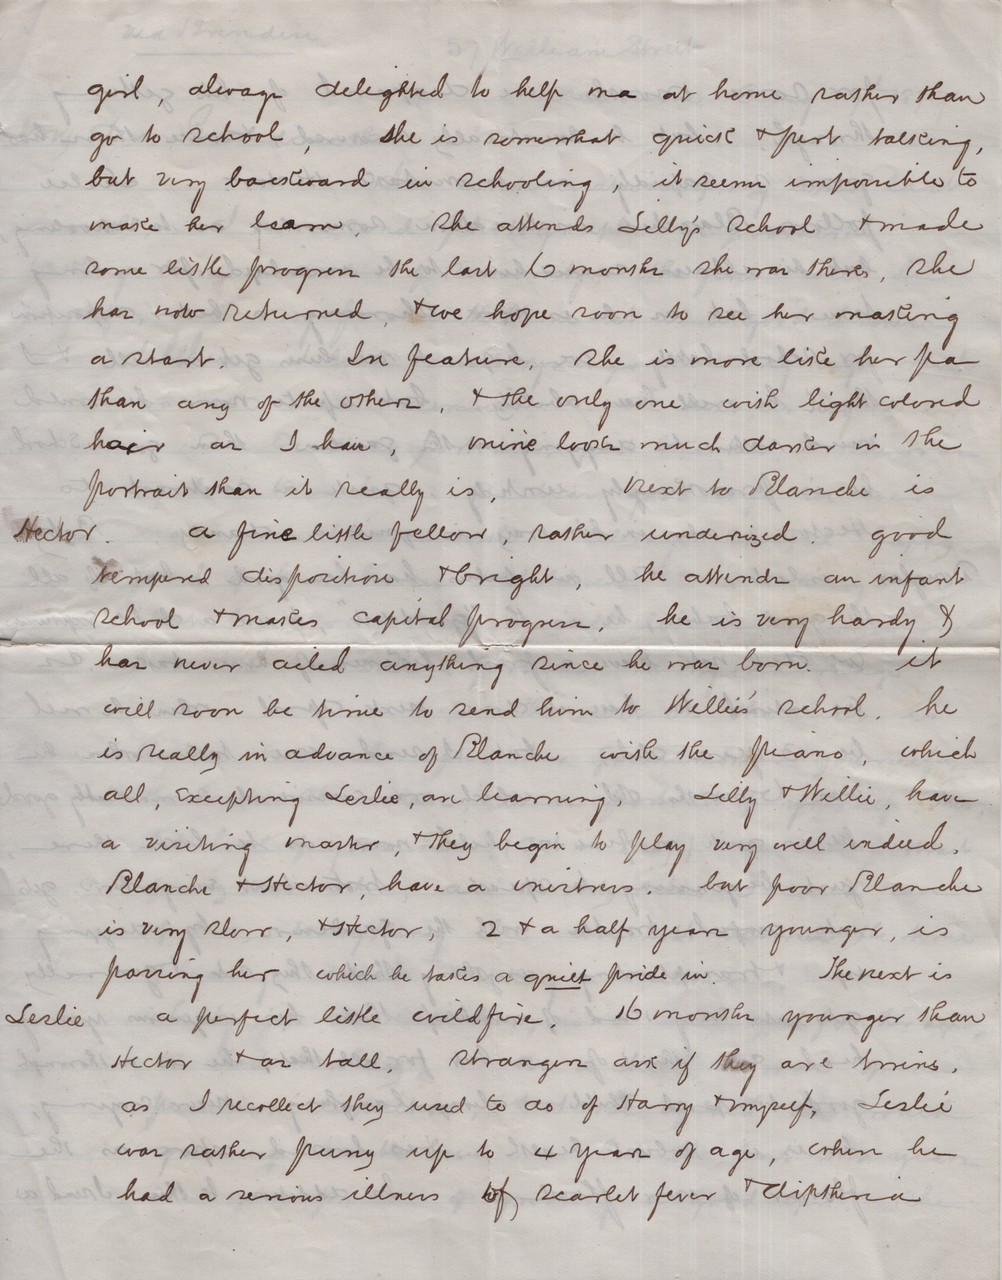 via Brindisi
57 William Street
girl, always delighted to help ma at home rather than
go to school, she is somewhat quick & pert talking,
but very backward in schooling, it seems impossible to
make her learn. She attends Lilly's school & made
some little progress the last 6 months she was there, she
has now returned, & we hope soon to see her making
a start. In feature, she is more like her pa
than any of the others, & the only one with light colored
hair as I have, mine looks much darker in the
portrait than it really is, next to Blanche is
Hector. a fine little fellow, rather undersized. good
tempered disposition & bright, he attends an infant
school & makes capital progress. he is very hardy &
has never ailed anything since he was born. it
will soon be time to send him to Willie's school. he
is really in advance of Blanche with the piano, which
all, excepting Leslie, are learning. Lilly & Willie, have
a visiting master, & they begin to play very well indeed.
Blanche & Hector, have a mistress. but poor Blanche
is very slow, & Hector, 2 & a half years younger, is
passing her which he takes a quiet pride in. The next is
Leslie a perfect little wildfire. 16 months younger than
Hector & as tall. strangers ask if they are twins.
as I recollect they used to do of Harry & myself, Leslie
was rather puny up to 4 years of age, when he
had a serious illness of scarlet fever & diptheria